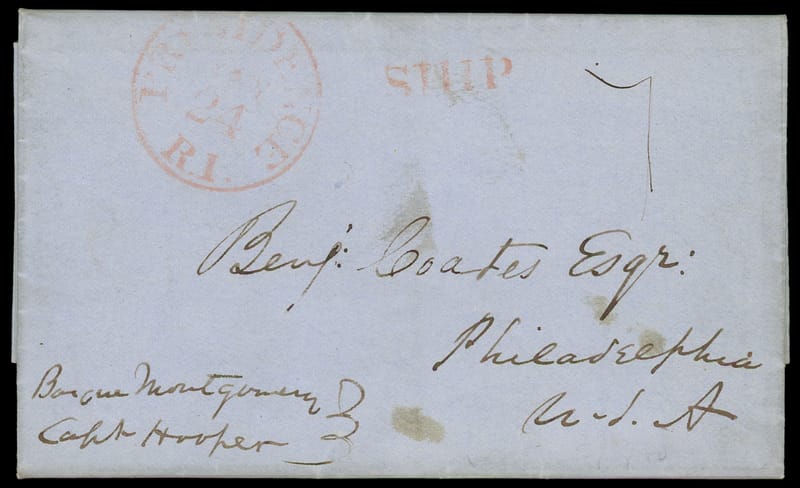 PROVIDENCE
24
R.I.
SHIP
7
Benj: Coates Esqr:
Philadelphia
U.S.A
Barque Montgomery
Capt Hooper